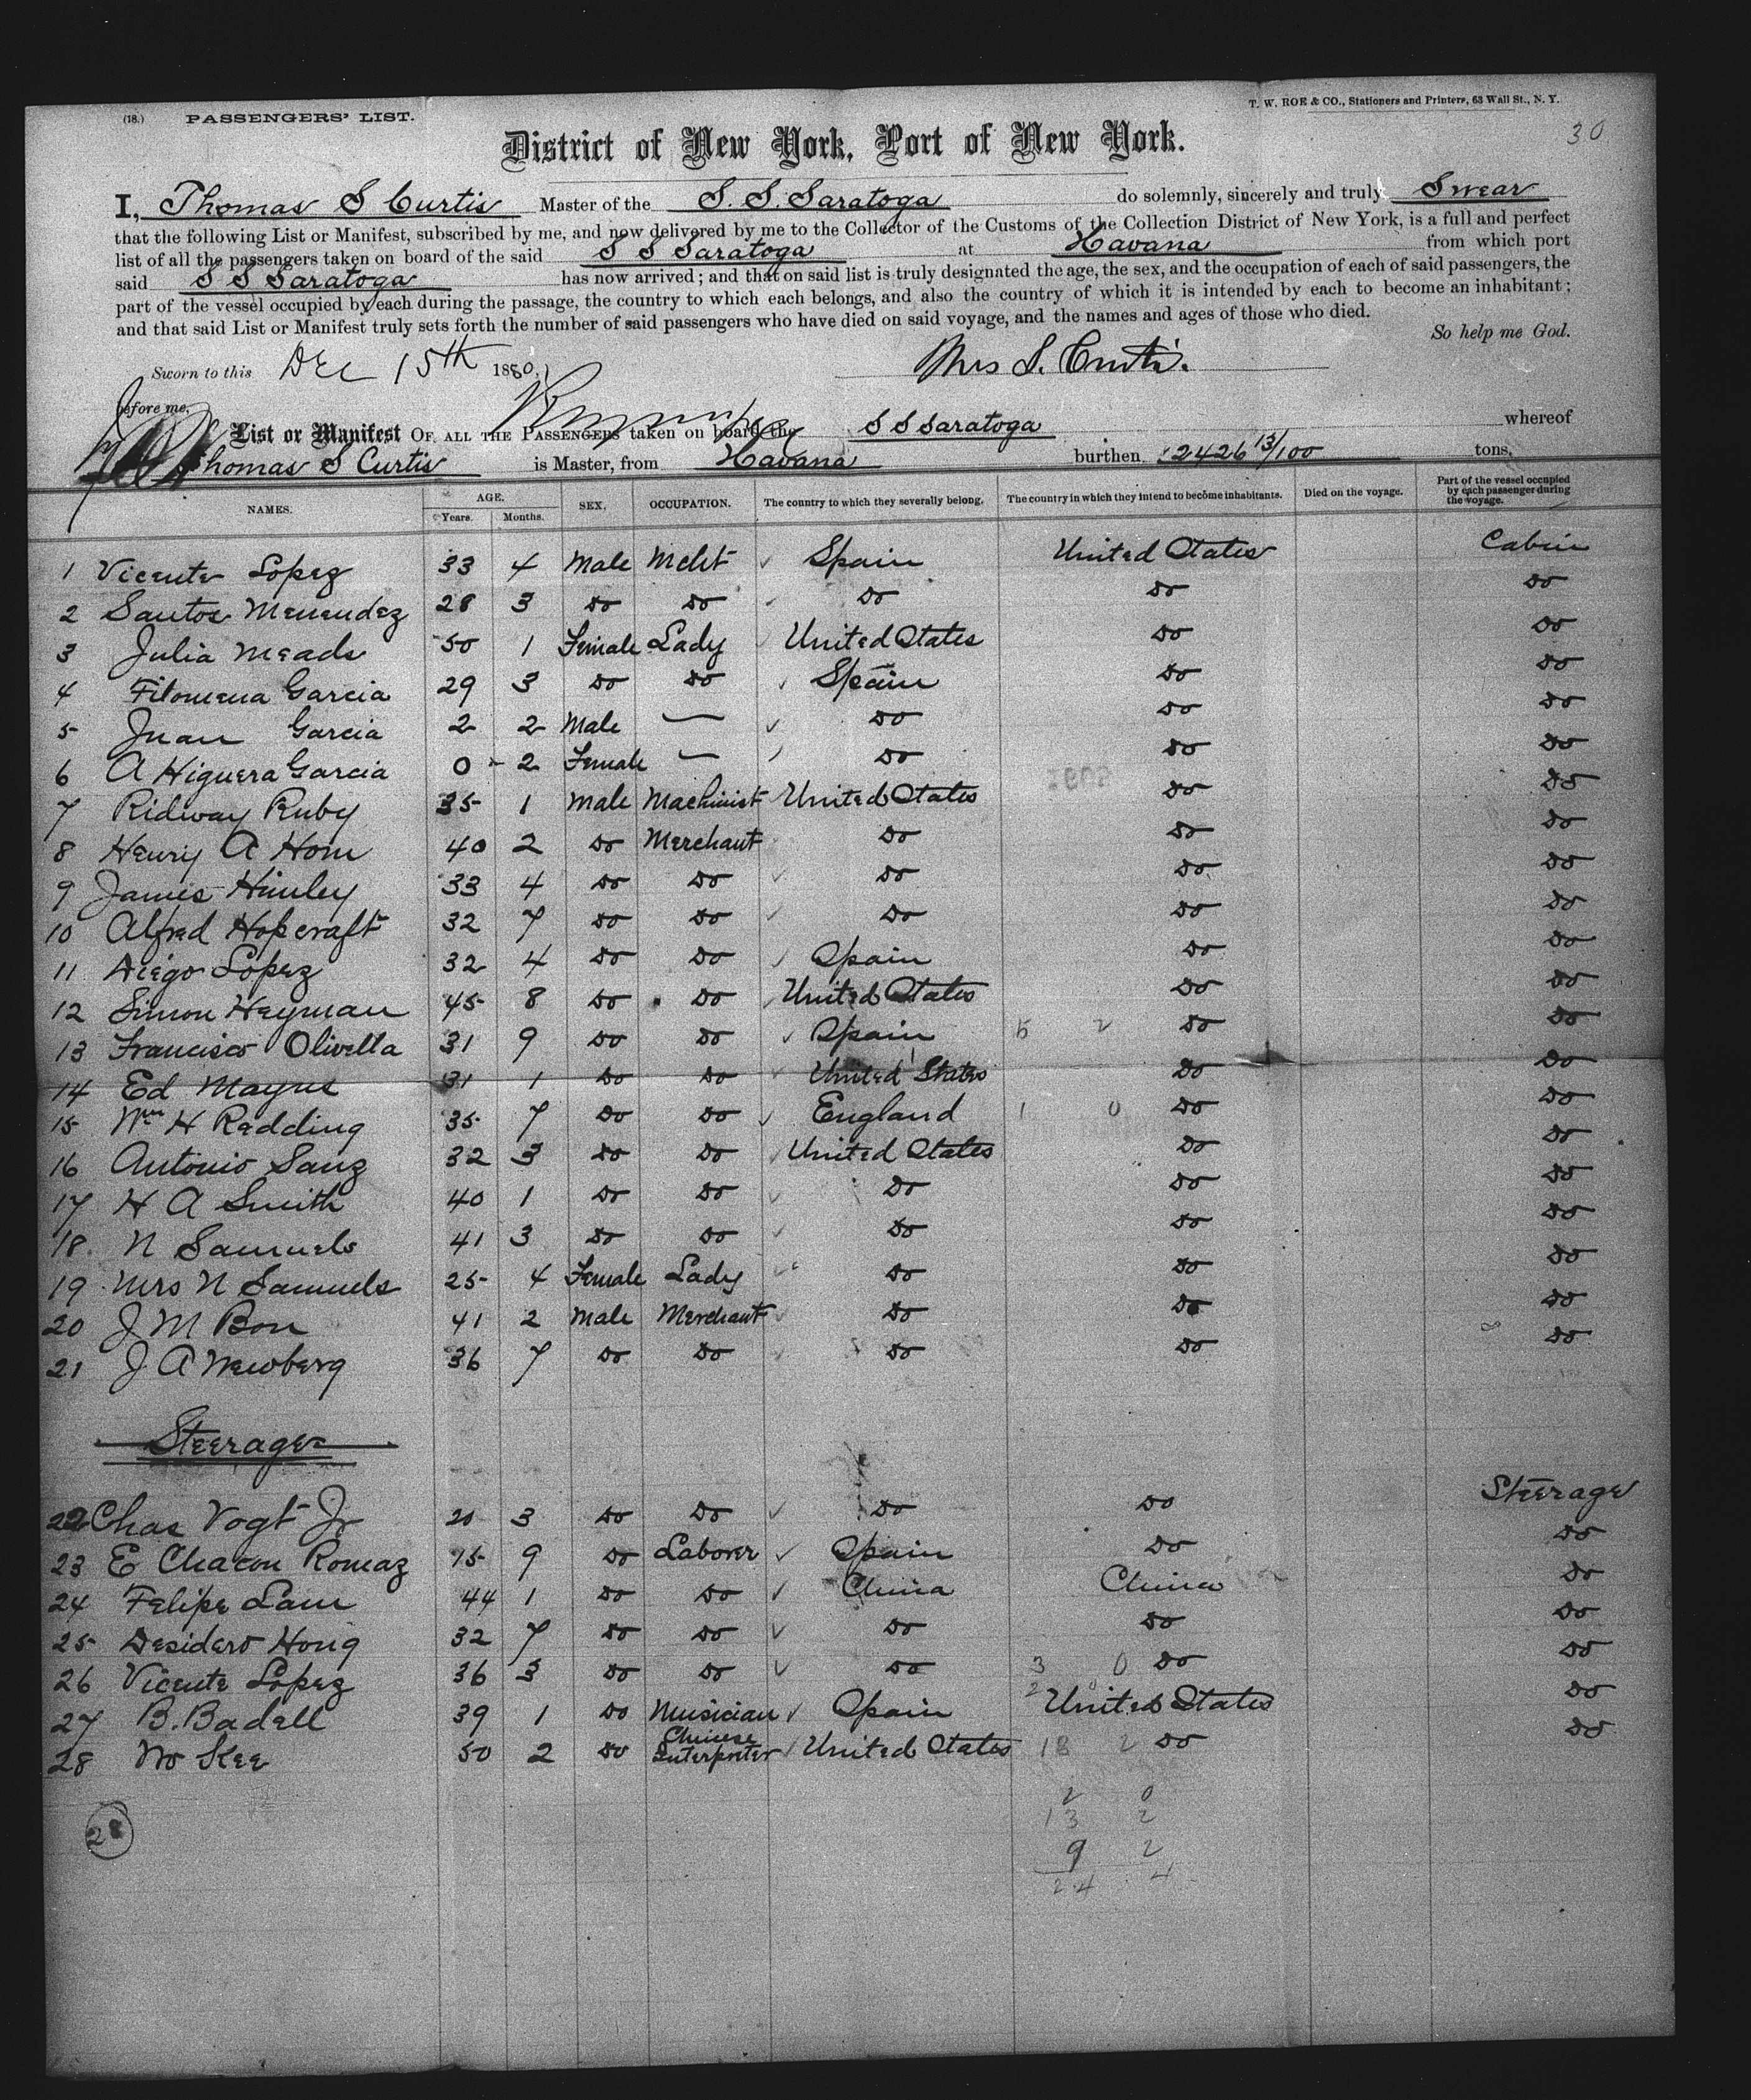 (18.) PASSENGERS' LIST.
T. W. ROE & CO., Stationers and Printers, 63 Wall St., N. Y.
30
District of New York, Port of New York.
I, Thomas S Curtis Master of the S. S. Saratoga do solemnly, sincerely and truly Swear
that the following List or Manifest, subscribed by me, and now delivered by me to the Collector of the Customs of the Collection District of New York, is a full and perfect
list of all the passengers taken on board of the said S S Saratoga at Havana from which port
said S S Saratoga has now arrived; and that on said list is truly designated the age, the sex, and the occupation of each of said passengers, the
part of the vessel occupied by each during the passage, the country to which each belongs, and also the country of which it is intended by each to become an inhabitant;
and that said List or Manifest truly sets forth the number of said passengers who have died on said voyage, and the names and ages of those who died.
So help me God.
Sworn to this Dec 15th 1880,
before me,
List or Manifest OF ALL THE PASSENGERS taken on board the S S Saratoga whereof
Thomas S Curtis is Master, from Havana burthen 2426 13/100 tons,
NAMES. AGE. Years. Months. SEX. OCCUPATION. The country to which they severally belong. The country in which they intend to become inhabitants. Died on the voyage. Part of the vessel occupied by each passenger during the voyage.
1 Vicente Lopez 33 4 Male Mcht Spain United States Cabin
2 Santos Menendez 28 3 Do Do Do Do Do
3 Julia Meads 50 1 Female Lady United States Do Do
4 Filomena Garcia 29 3 Do Do Spain Do Do
5 Juan Garcia 2 2 Male — Do Do Do
6 A Higuera Garcia 0 2 Female — Do Do Do
7 Ridway Ruby 35 1 Male Machinist United States Do Do
8 Henry A Horn 40 2 Do Merchant Do Do Do
9 James Himley 33 4 Do Do Do Do Do
10 Alfred Hopcraft 32 7 Do Do Do Do Do
11 Diego Lopez 32 4 Do Do Spain Do Do
12 Simon Heyman 45 8 Do Do United States Do Do
13 Francisco Olivella 31 9 Do Do Spain Do Do
14 Ed Mayne 31 1 Do Do United States Do Do
15 Wm H Redding 35 7 Do Do England Do Do
16 Antonio Sanz 32 3 Do Do United States Do Do
17 H A Smith 40 1 Do Do Do Do Do
18 N Samuels 41 3 Do Do Do Do Do
19 Mrs N Samuels 25 4 Female Lady Do Do Do
20 J M Bon 41 2 Male Merchant Do Do Do
21 J A Newberg 36 7 Do Do Do Do Do
Steerage
22 Chas Vogt Jr 20 3 Do Do Do Do Steerage
23 E Chacon Romaz 15 9 Do Laborer Spain Do Do
24 Felipe Lam 44 1 Do Do China China Do
25 Desidero Hong 32 7 Do Do Do Do Do
26 Vicente Lopez 36 3 Do Do Do Do Do
27 B. Badell 39 1 Do Musician Spain United States Do
28 Wo Kee 50 2 Do Chinese Interpreter United States Do Do
2 0
13 2
28
9 2
24 4